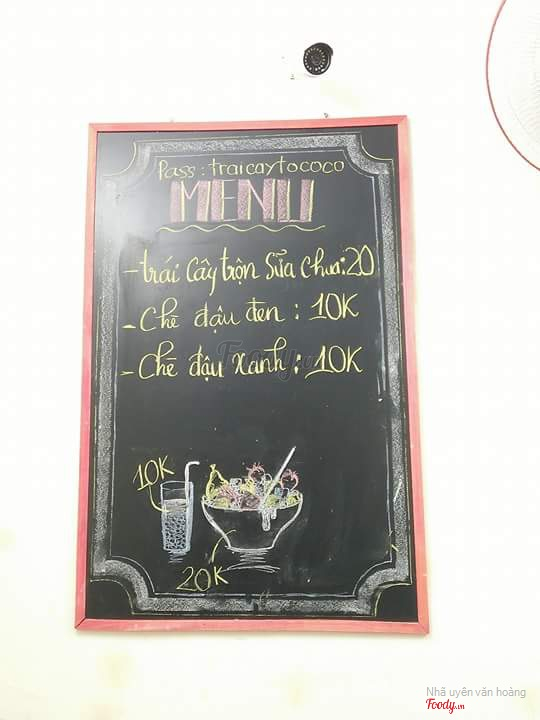 Pass: traicaytococo
MENU
- trái Cây trộn Sữa chua: 20
- Chè đậu đen : 10K
- Chè đậu Xanh : 10K
10K
20K
Nhã uyên văn hoàng
Foody.vn